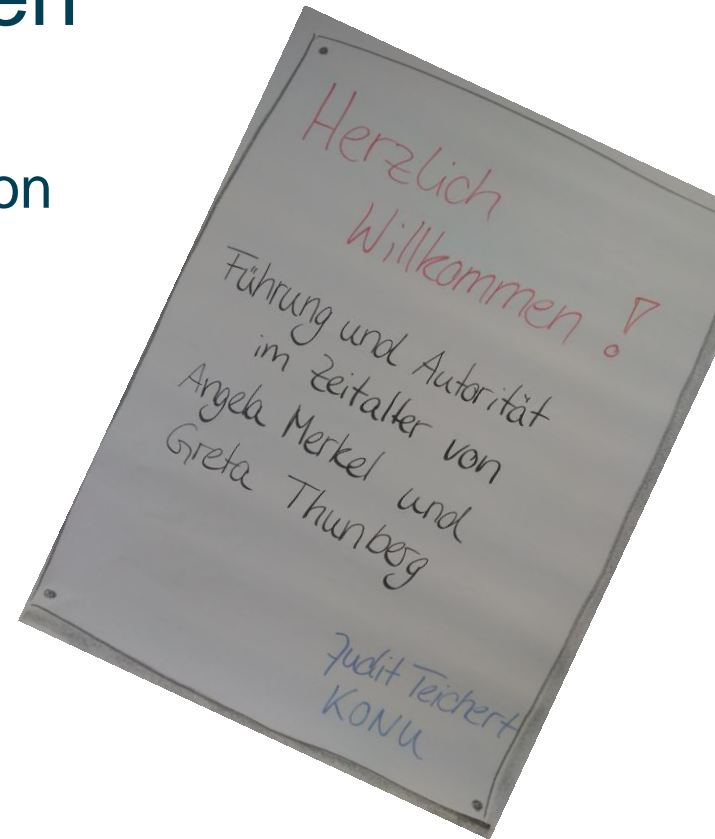 en
on
Herzlich
Willkommen !
Führung und Autorität
im Zeitalter von
Angela Merkel und
Greta Thunberg
Judit Teichert
KONU